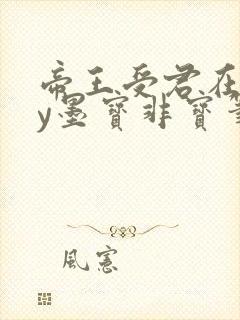 帝王受君在
y墨寶非寶筆
風憲